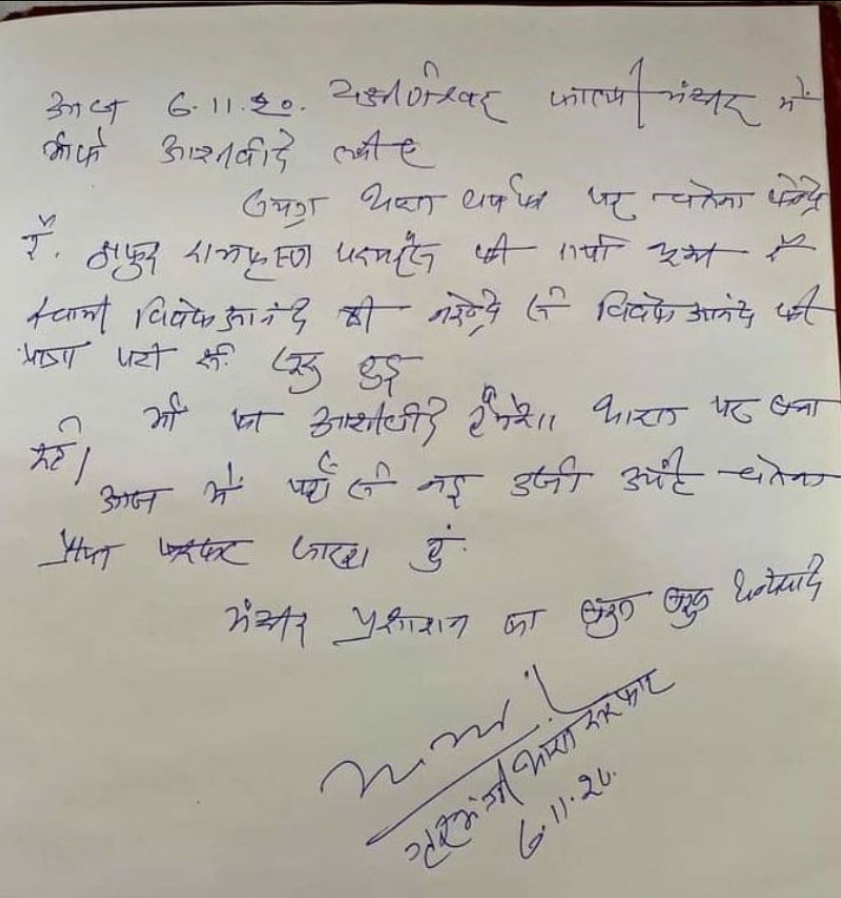 आज 6.11.20. दक्षिणेश्वर काली मंदिर में
माँ के आशीर्वाद
भारत पर चेतना केन्द्र
है. ठाकुर रामकृष्ण परमहंस की
स्वामी विवेकानंद की नरेन्द्र से विवेकानंद की
यात्रा यही से शुरू हुई
माँ का आशीर्वाद हमेशा भारत पर बना
रहे।
आज में यहाँ से नई उर्जा और चेतना
प्राप्त करकर जारहा हुं.
मंदिर प्रशासन का बहुत बहुत धन्यवाद
गृहमंत्री भारत सरकार
6.11.20.